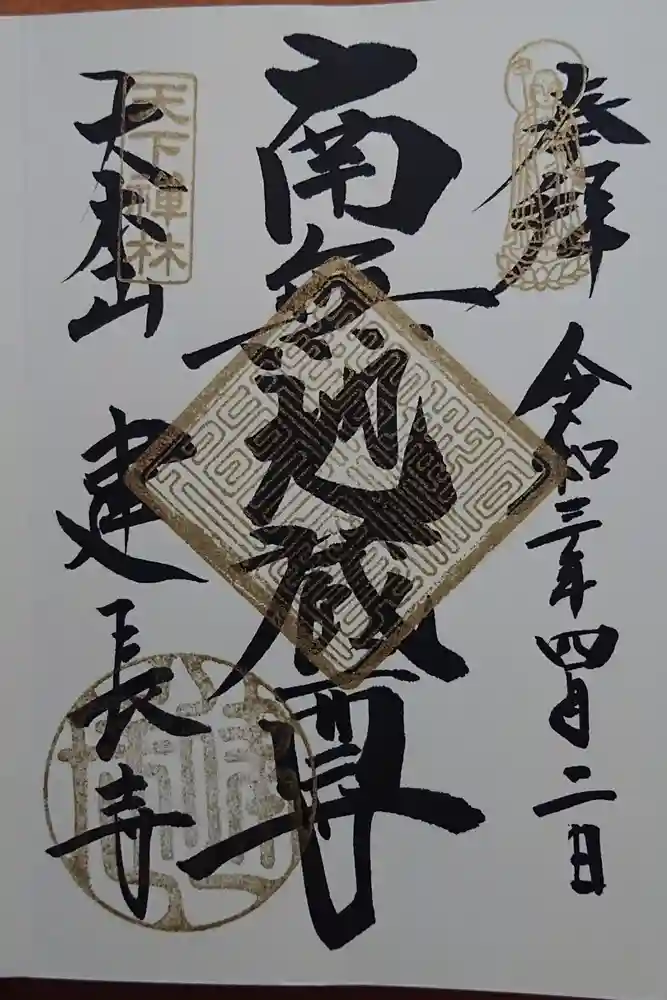 奉拝
令和三年四月二日
南無地蔵尊
天下禅林
大本山
建長寺